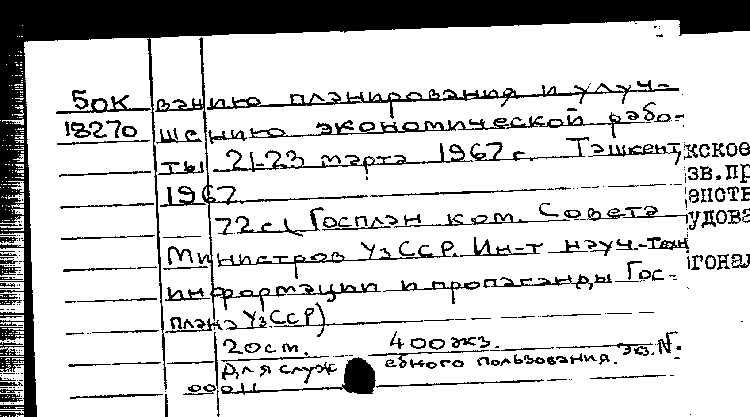 БОК ванию планирования и улуч-
18270 шению экономической рабо-
ты 21-23 марта 1967 г. Ташкент,
1967.
72 с. (Госплан ком. Совета
Министров УзССР. Ин-т науч.-техн
информации и пропаганды Гос-
плана УзССР)
20 ст. 400 экз.
Для служебного пользования. Экз. N.
00011
кское
зв.пр
енств
удова
гонал